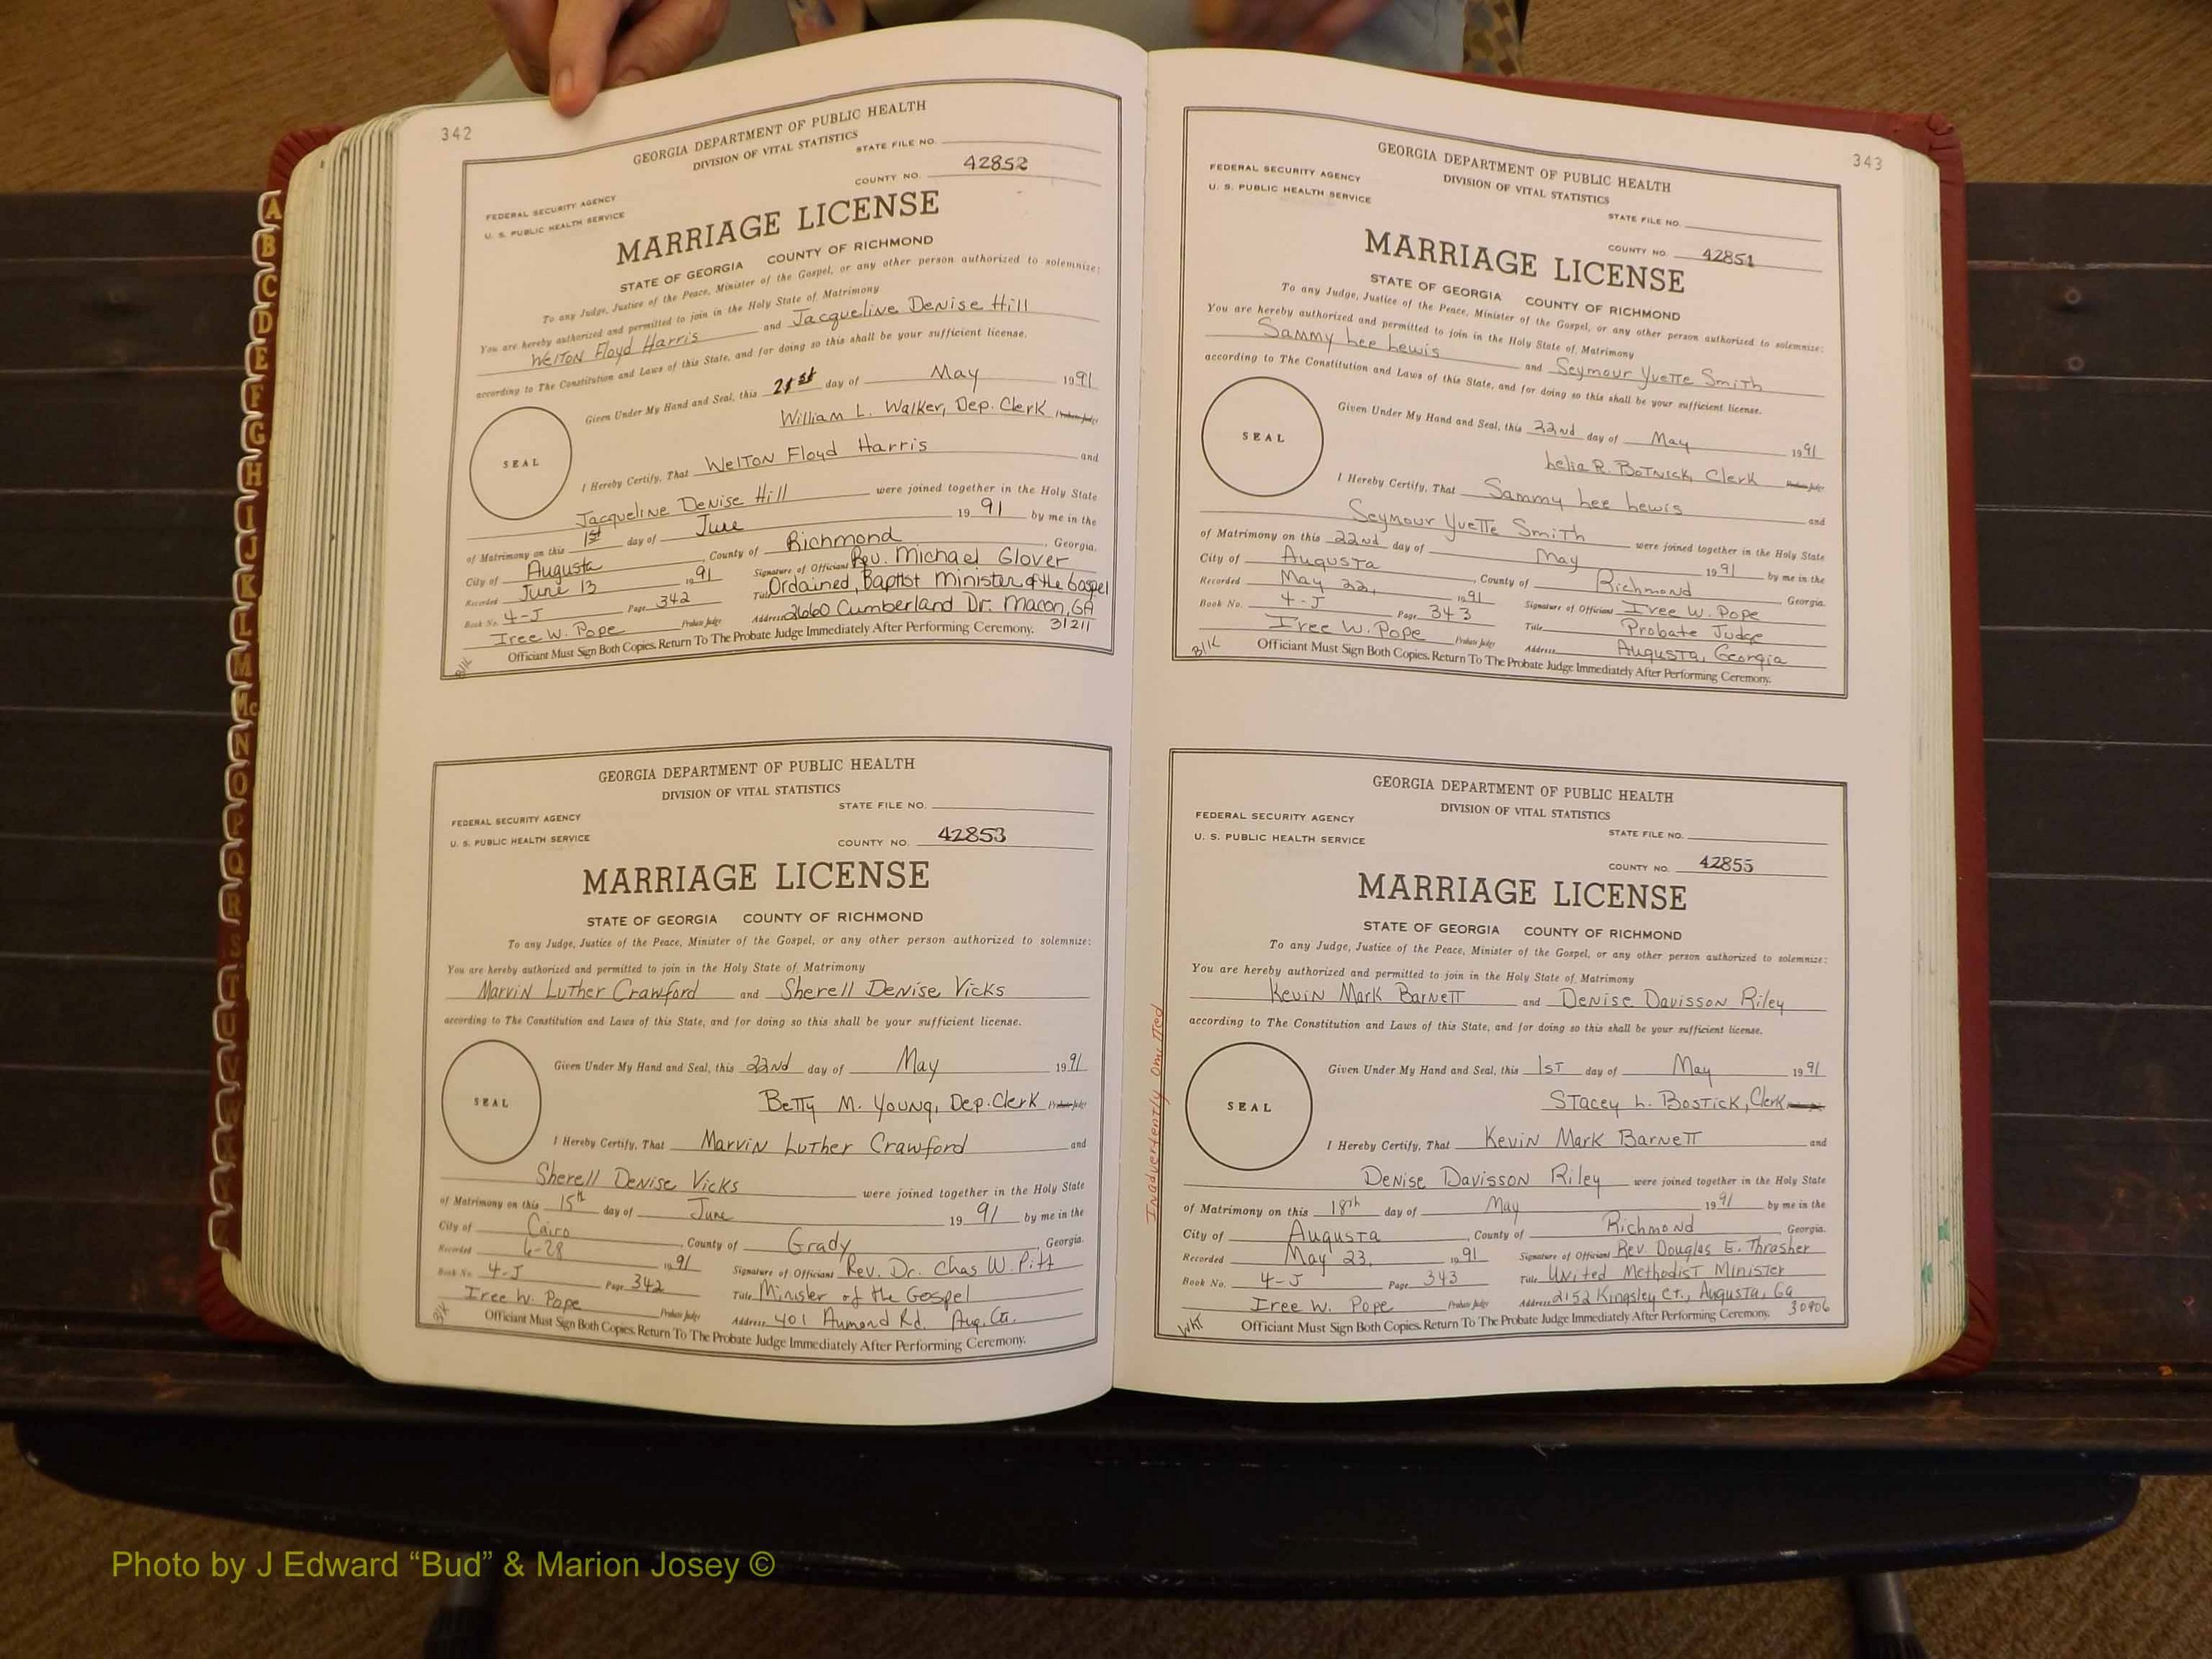 342
GEORGIA DEPARTMENT OF PUBLIC HEALTH
DIVISION OF VITAL STATISTICS
STATE FILE NO.
42852
COUNTY NO.
FEDERAL SECURITY AGENCY
U. S. PUBLIC HEALTH SERVICE
MARRIAGE LICENSE
STATE OF GEORGIA COUNTY OF RICHMOND
To any Judge, Justice of the Peace, Minister of the Gospel, or any other person authorized to solemnize:
You are hereby authorized and permitted to join in the Holy State of Matrimony
Welton Floyd Harris and Jacqueline Denise Hill
according to The Constitution and Laws of this State, and for doing so this shall be your sufficient license.
Given Under My Hand and Seal, this 21st day of May 1991
William L. Walker, Dep. Clerk Probate Judge
SEAL
I Hereby Certify, That Welton Floyd Harris and
Jacqueline Denise Hill were joined together in the Holy State
of Matrimony on this 1st day of June 1991 by me in the
City of Augusta, County of Richmond, Georgia.
Recorded June 13 1991 Signature of Officiant Rev. Michael Glover
Book No. 4-J Page 342 Title Ordained, Baptist Minister of the Gospel
Iree W. Pope Probate Judge Address 2660 Cumberland Dr. Macon, GA
31211
Officiant Must Sign Both Copies. Return To The Probate Judge Immediately After Performing Ceremony.
GEORGIA DEPARTMENT OF PUBLIC HEALTH
DIVISION OF VITAL STATISTICS
STATE FILE NO.
FEDERAL SECURITY AGENCY
U. S. PUBLIC HEALTH SERVICE
COUNTY NO. 42853
MARRIAGE LICENSE
STATE OF GEORGIA COUNTY OF RICHMOND
To any Judge, Justice of the Peace, Minister of the Gospel, or any other person authorized to solemnize:
You are hereby authorized and permitted to join in the Holy State of Matrimony
Marvin Luther Crawford and Sherell Denise Vicks
according to The Constitution and Laws of this State, and for doing so this shall be your sufficient license.
Given Under My Hand and Seal, this 22nd day of May 1991
SEAL
Betty M. Young, Dep. Clerk Probate Judge
I Hereby Certify, That Marvin Luther Crawford and
Sherell Denise Vicks were joined together in the Holy State
of Matrimony on this 15th day of June 1991 by me in the
City of Cairo, County of Grady, Georgia.
Recorded 6-28 1991 Signature of Officiant Rev. Dr. Chas W. Pitt
Book No. 4-J Page 342 Title Minister of the Gospel
Iree W. Pope Probate Judge Address 401 Aumond Rd. Aug. Ga.
Officiant Must Sign Both Copies. Return To The Probate Judge Immediately After Performing Ceremony.
343
GEORGIA DEPARTMENT OF PUBLIC HEALTH
DIVISION OF VITAL STATISTICS
FEDERAL SECURITY AGENCY
U. S. PUBLIC HEALTH SERVICE
STATE FILE NO.
COUNTY NO. 42851
MARRIAGE LICENSE
STATE OF GEORGIA COUNTY OF RICHMOND
To any Judge, Justice of the Peace, Minister of the Gospel, or any other person authorized to solemnize:
You are hereby authorized and permitted to join in the Holy State of Matrimony
Sammy Lee Lewis and Seymour Yvette Smith
according to The Constitution and Laws of this State, and for doing so this shall be your sufficient license.
Given Under My Hand and Seal, this 22nd day of May 1991
SEAL
Lelia R. Botnick, Clerk Probate Judge
I Hereby Certify, That Sammy Lee Lewis and
Seymour Yvette Smith were joined together in the Holy State
of Matrimony on this 22nd day of May 1991 by me in the
City of Augusta, County of Richmond Georgia.
Recorded May 22, 1991 Signature of Officiant Iree W. Pope
Book No. 4-J Page 343 Title Probate Judge
Iree W. Pope Probate Judge Address Augusta, Georgia
BIK
Officiant Must Sign Both Copies. Return To The Probate Judge Immediately After Performing Ceremony.
GEORGIA DEPARTMENT OF PUBLIC HEALTH
DIVISION OF VITAL STATISTICS
FEDERAL SECURITY AGENCY
U. S. PUBLIC HEALTH SERVICE
STATE FILE NO.
COUNTY NO. 42855
MARRIAGE LICENSE
STATE OF GEORGIA COUNTY OF RICHMOND
To any Judge, Justice of the Peace, Minister of the Gospel, or any other person authorized to solemnize:
You are hereby authorized and permitted to join in the Holy State of Matrimony
Kevin Mark Barnett and Denise Davisson Riley
according to The Constitution and Laws of this State, and for doing so this shall be your sufficient license.
Given Under My Hand and Seal, this 1st day of May 1991
SEAL
Stacey L. Bostick, Clerk
I Hereby Certify, That Kevin Mark Barnett and
Denise Davisson Riley were joined together in the Holy State
of Matrimony on this 18th day of May 1991 by me in the
City of Augusta, County of Richmond, Georgia.
Recorded May 23, 1991 Signature of Officiant Rev Douglas E. Thrasher
Book No. 4-J Page 343 Title United Methodist Minister
Iree W. Pope Probate Judge Address 2152 Kingsley Ct., Augusta, Ga
30906
WKT
Officiant Must Sign Both Copies. Return To The Probate Judge Immediately After Performing Ceremony.
Inadvertently Omitted
A
B
C
D
E
F
G
H
I
J
K
L
M
Mc
N
O
P
Q
R
S
T
U
V
W
Photo by J Edward “Bud” & Marion Josey ©